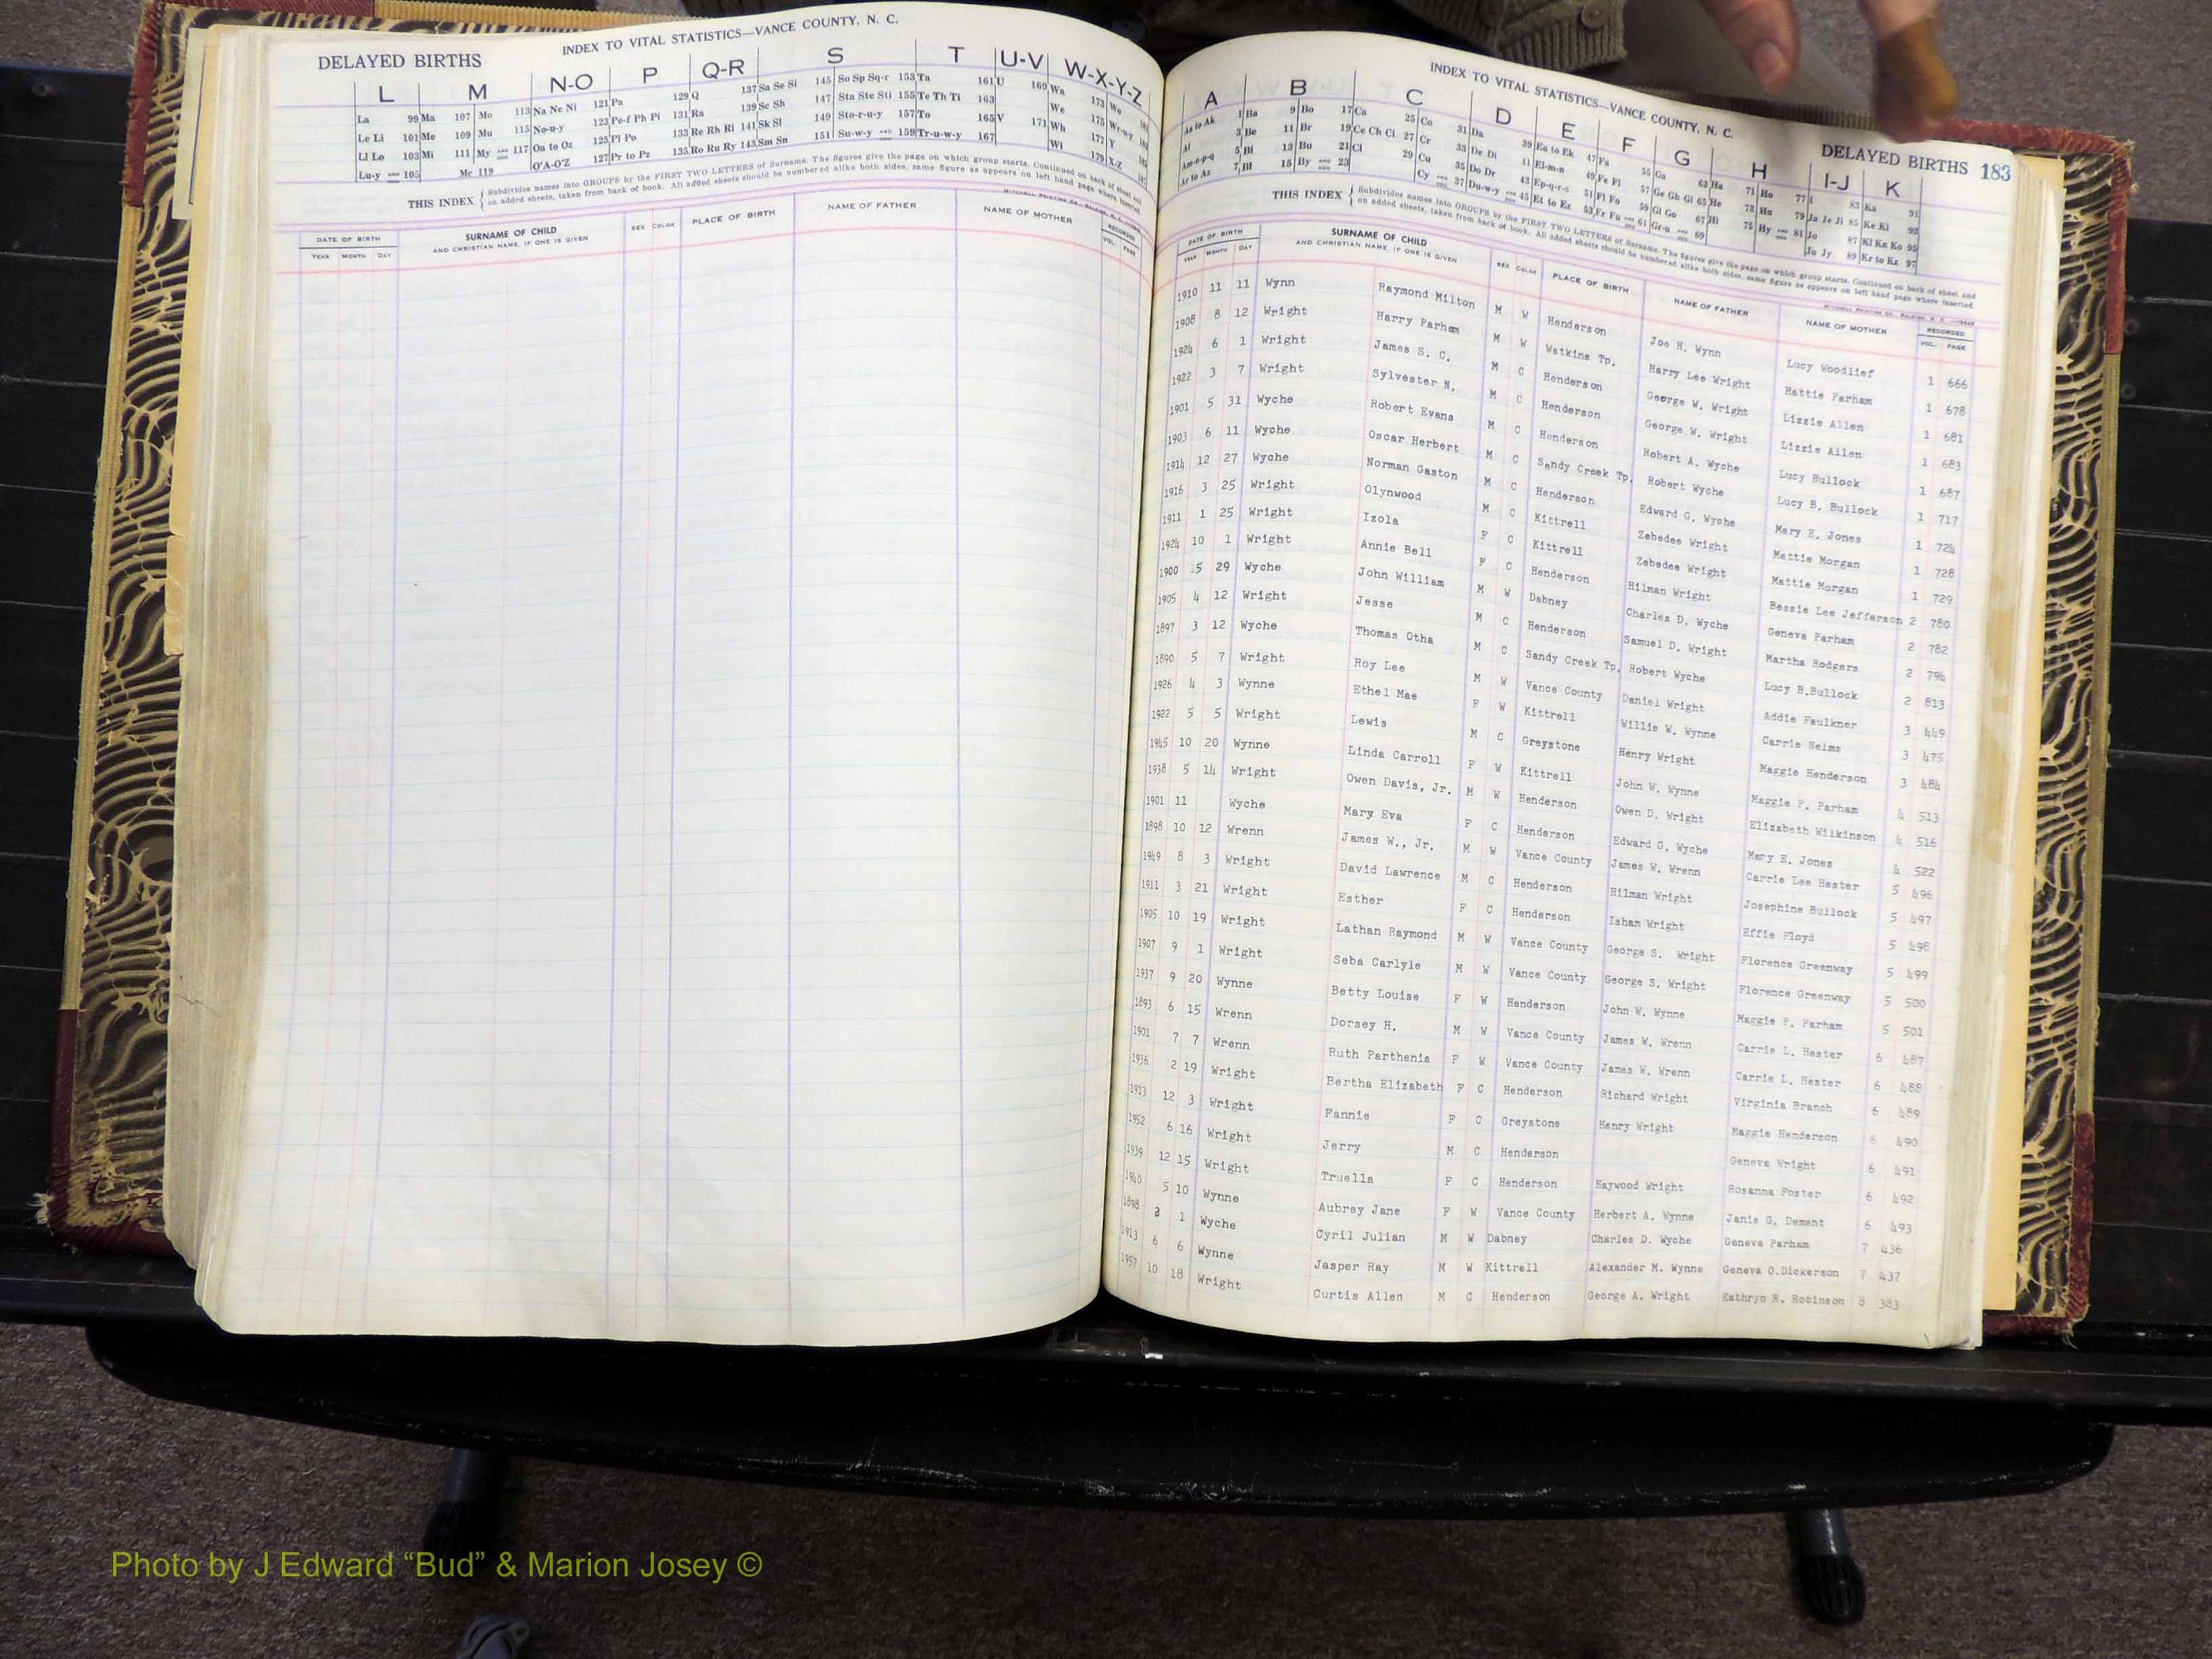 INDEX TO VITAL STATISTICS—VANCE COUNTY, N. C.
DELAYED BIRTHS
L M N-O P Q-R S T U-V W-X-Y-Z
La 99 Ma 107 Mo 113 Na Ne Ni 121 Pa 129 Q 137 Sa Se Si 145 So Sp Sq-r 153 Ta 161 U 169 Wa 173 Wo
Le Li 101 Me 109 Mu 115 No-u-y 123 Pe-f Ph Pi 131 Ra 139 Sc Sh 147 Sta Ste Sti 155 Te Th Ti 163 We 175 Wr-u-y
Ll Lo 103 Mi 111 My AND 117 Oa to Oz 125 Pl Po 133 Re Rh Ri 141 Sk Sl 149 Sto-r-u-y 157 To 165 V 171 Wh 177 Y
Lu-y AND 105 Mc 119 O'A-O'Z 127 Pr to Pz 135 Ro Ru Ry 143 Sm Sn 151 Su-w-y AND 159 Tr-u-w-y 167 Wi 179 X-Z
THIS INDEX { Subdivides names into GROUPS by the FIRST TWO LETTERS of Surname. The figures give the page on which group starts. Continued on back of sheet and
on added sheets, taken from back of book. All added sheets should be numbered alike both sides, same figure as appears on left hand page where inserted.
DATE OF BIRTH SURNAME OF CHILD SEX COLOR PLACE OF BIRTH NAME OF FATHER NAME OF MOTHER RECORDED
YEAR MONTH DAY AND CHRISTIAN NAME, IF ONE IS GIVEN VOL. PAGE
INDEX TO VITAL STATISTICS—VANCE COUNTY, N. C.
DELAYED BIRTHS 183
A B C D E F G H I-J K
Aa to Ak 1 Ba 9 Bo 17 Ca 25 Co 31 Da 39 Ea to Ek 47 Fa 55 Ga 63 Ha 71 Ho 77 I 83 Ka 91
Al 3 Be 11 Br 19 Ce Ch Ci 27 Cr 33 De Di 41 El-m-n 49 Fe Fi 57 Ge Gh Gi 65 He 73 Hu 79 Ja Je Ji 85 Ke Ki 93
Am-n-p-q 5 Bi 13 Bu 21 Cl 29 Cu 35 Do Dr 43 Ep-q-r-s 51 Fl Fo 59 Gl Go 67 Hi 75 Hy AND 81 Jo 87 Kl Kn Ko 95
Ar to Az 7 Bl 15 By AND 23 Cy AND 37 Du-w-y AND 45 Et to Ez 53 Fr Fu AND 61 Gr-u AND 69 Ju Jy 89 Kr to Kz 97
THIS INDEX { Subdivides names into GROUPS by the FIRST TWO LETTERS of Surname. The figures give the page on which group starts. Continued on back of sheet and
on added sheets, taken from back of book. All added sheets should be numbered alike both sides, same figure as appears on left hand page where inserted.
DATE OF BIRTH SURNAME OF CHILD SEX COLOR PLACE OF BIRTH NAME OF FATHER NAME OF MOTHER RECORDED
YEAR MONTH DAY AND CHRISTIAN NAME, IF ONE IS GIVEN VOL. PAGE
1910 11 11 Wynn Raymond Milton M W Henderson Joe H. Wynn Lucy Woodlief 1 666
1908 8 12 Wright Harry Parham M W Watkins Tp. Harry Lee Wright Hattie Parham 1 678
1924 6 1 Wright James S. C. M C Henderson George W. Wright Lizzie Allen 1 681
1922 3 7 Wright Sylvester N. M C Henderson George W. Wright Lizzie Allen 1 683
1901 5 31 Wyche Robert Evans M C Henderson Robert A. Wyche Lucy Bullock 1 687
1903 6 11 Wyche Oscar Herbert M C Sandy Creek Tp. Robert Wyche Lucy B. Bullock 1 717
1914 12 27 Wyche Norman Gaston M C Henderson Edward G. Wyche Mary E. Jones 1 724
1916 3 25 Wright Olynwood M C Kittrell Zebedee Wright Mattie Morgan 1 728
1911 1 25 Wright Izola F C Kittrell Zebedee Wright Mattie Morgan 1 729
1924 10 1 Wright Annie Bell F C Henderson Hilman Wright Bessie Lee Jefferson 2 780
1900 5 29 Wyche John William M W Dabney Charles D. Wyche Geneva Parham 2 782
1905 4 12 Wright Jesse M C Henderson Samuel D. Wright Martha Rodgers 2 796
1897 3 12 Wyche Thomas Otha M C Sandy Creek Tp. Robert Wyche Lucy B.Bullock 2 813
1890 5 7 Wright Roy Lee M W Vance County Daniel Wright Addie Faulkner 3 449
1926 4 3 Wynne Ethel Mae F W Kittrell Willie W. Wynne Carrie Nelms 3 475
1922 5 5 Wright Lewis M C Greystone Henry Wright Maggie Henderson 3 484
1945 10 20 Wynne Linda Carroll F W Kittrell John W. Wynne Maggie P. Parham 4 513
1938 5 14 Wright Owen Davis, Jr. M W Henderson Owen D. Wright Elizabeth Wilkinson 4 516
1901 11 Wyche Mary Eva F C Henderson Edward G. Wyche Mary E. Jones 4 522
1898 10 12 Wrenn James W., Jr. M W Vance County James W. Wrenn Carrie Lee Hester 5 496
1949 8 3 Wright David Lawrence M C Henderson Hilman Wright Josephine Bullock 5 497
1911 3 21 Wright Esther F C Henderson Isham Wright Effie Floyd 5 498
1905 10 19 Wright Lathan Raymond M W Vance County George S. Wright Florence Greenway 5 499
1907 9 1 Wright Seba Carlyle M W Vance County George S. Wright Florence Greenway 5 500
1937 9 20 Wynne Betty Louise F W Henderson John W. Wynne Maggie P. Parham 5 501
1893 6 15 Wrenn Dorsey H. M W Vance County James W. Wrenn Carrie L. Hester 6 487
1901 7 7 Wrenn Ruth Parthenia F W Vance County James W. Wrenn Carrie L. Hester 6 488
1936 2 19 Wright Bertha Elizabeth F C Henderson Richard Wright Virginia Branch 6 489
1913 12 3 Wright Fannie F C Greystone Henry Wright Maggie Henderson 6 490
1952 6 16 Wright Jerry M C Henderson Geneva Wright 6 491
1939 12 15 Wright Truella F C Henderson Haywood Wright Rosanna Foster 6 492
1940 5 10 Wynne Aubrey Jane F W Vance County Herbert A. Wynne Janie G. Dement 6 493
1898 2 1 Wyche Cyril Julian M W Dabney Charles D. Wyche Geneva Parham 7 436
1913 6 6 Wynne Jasper Ray M W Kittrell Alexander M. Wynne Geneva O.Dickerson 7 437
1957 10 18 Wright Curtis Allen M C Henderson George A. Wright Kathryn R. Robinson 8 383
Photo by J Edward “Bud” & Marion Josey ©